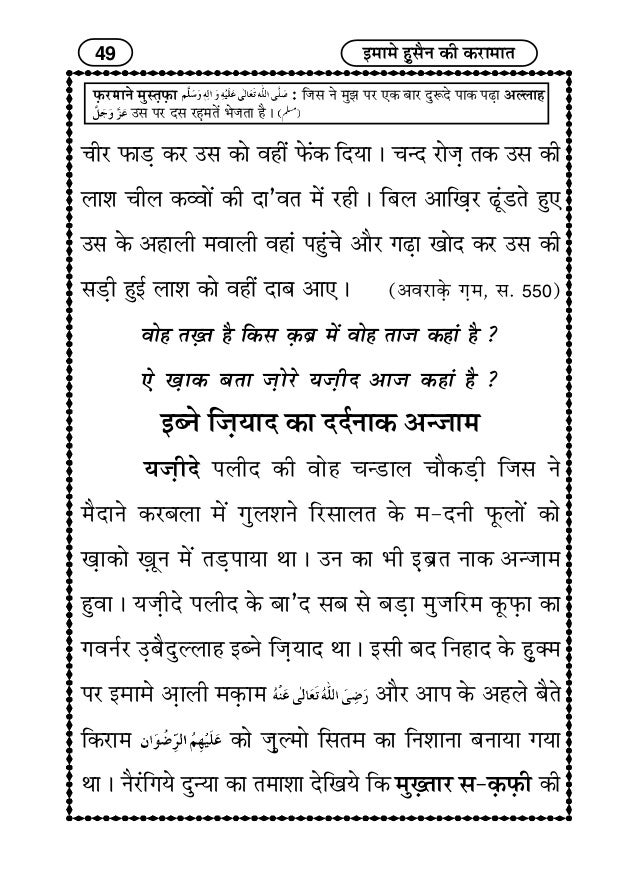 49
इमामे हुसैन की करामात
फ़रमाने मुस्तफ़ा صَلَّى اللهُ تَعَالٰى عَلَيْهِ وَاٰلِهٖ وَسَلَّم : जिस ने मुझ पर एक बार दुरूदे पाक पढ़ा अल्लाह
عَزَّ وَجَلَّ उस पर दस रह़मतें भेजता है । (مسلم)
चीर फाड़ कर उस को वहीं फेंक दिया । चन्द रोज़ तक उस की
लाश चील कव्वों की दा'वत में रही । बिल आख़िर ढूंडते हुए
उस के अहाली मवाली वहां पहुंचे और गढ़ा खोद कर उस की
सड़ी हुई लाश को वहीं दाब आए । (अवराक़े ग़म, स. 550)
वोह तख़्त है किस क़ब्र में वोह ताज कहां है ?
ऐ ख़ाक बता ज़ोरे यज़ीद आज कहां है ?
इब्ने ज़ियाद का दर्दनाक अन्जाम
यज़ीदे पलीद की वोह चन्डाल चौकड़ी जिस ने
मैदाने करबला में गुलशने रिसालत के म-दनी फूलों को
ख़ाको ख़ून में तड़पाया था । उन का भी इब्रत नाक अन्जाम
हुवा । यज़ीदे पलीद के बा'द सब से बड़ा मुजरिम कूफ़ा का
गवर्नर उ़बैदुल्लाह इब्ने ज़ियाद था । इसी बद निहाद के हुक्म
पर इमामे आ़ली मक़ाम رَضِىَ اللهُ تَعَالٰى عَنْهُ और आप के अहले बैते
किराम عَلَيْهِمُ الرِّضْوَان को ज़ुल्मो सितम का निशाना बनाया गया
था । नैरंगिये दुन्या का तमाशा देखिये कि मुख़्तार स-क़फ़ी की